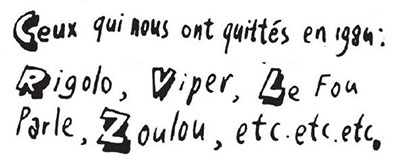 Ceux qui nous ont quittés en 1984:
Rigolo, Viper, Le Fou
Parle, Zoulou, etc.etc.etc.